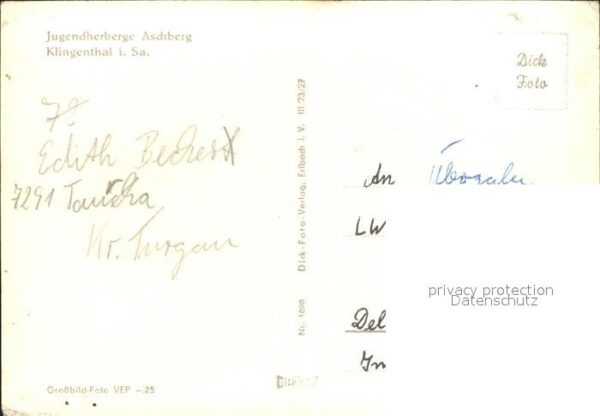 Jugendherberge Aschberg
Klingenthal i. Sa.
Dick
Foto
Edith
7291 Taucha
Kr. Turgau
Nr. 1698 Dick-Foto-Verlag, Erlbach i. V. III/23/27
An
LW
Del
In
privacy protection
Datenschutz
Großbild-Foto VEP –.25